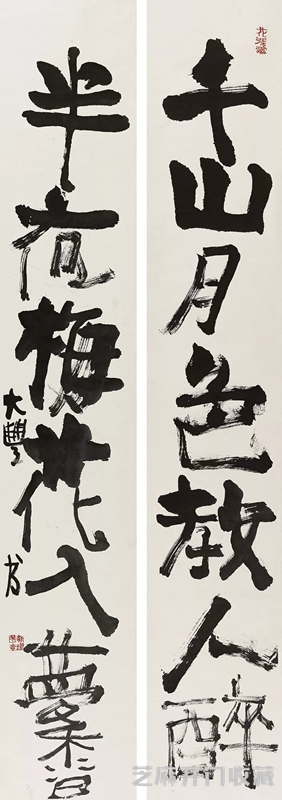 千山月色教人醉
半夜梅花入夢香
大豐书
芝麻开门收藏